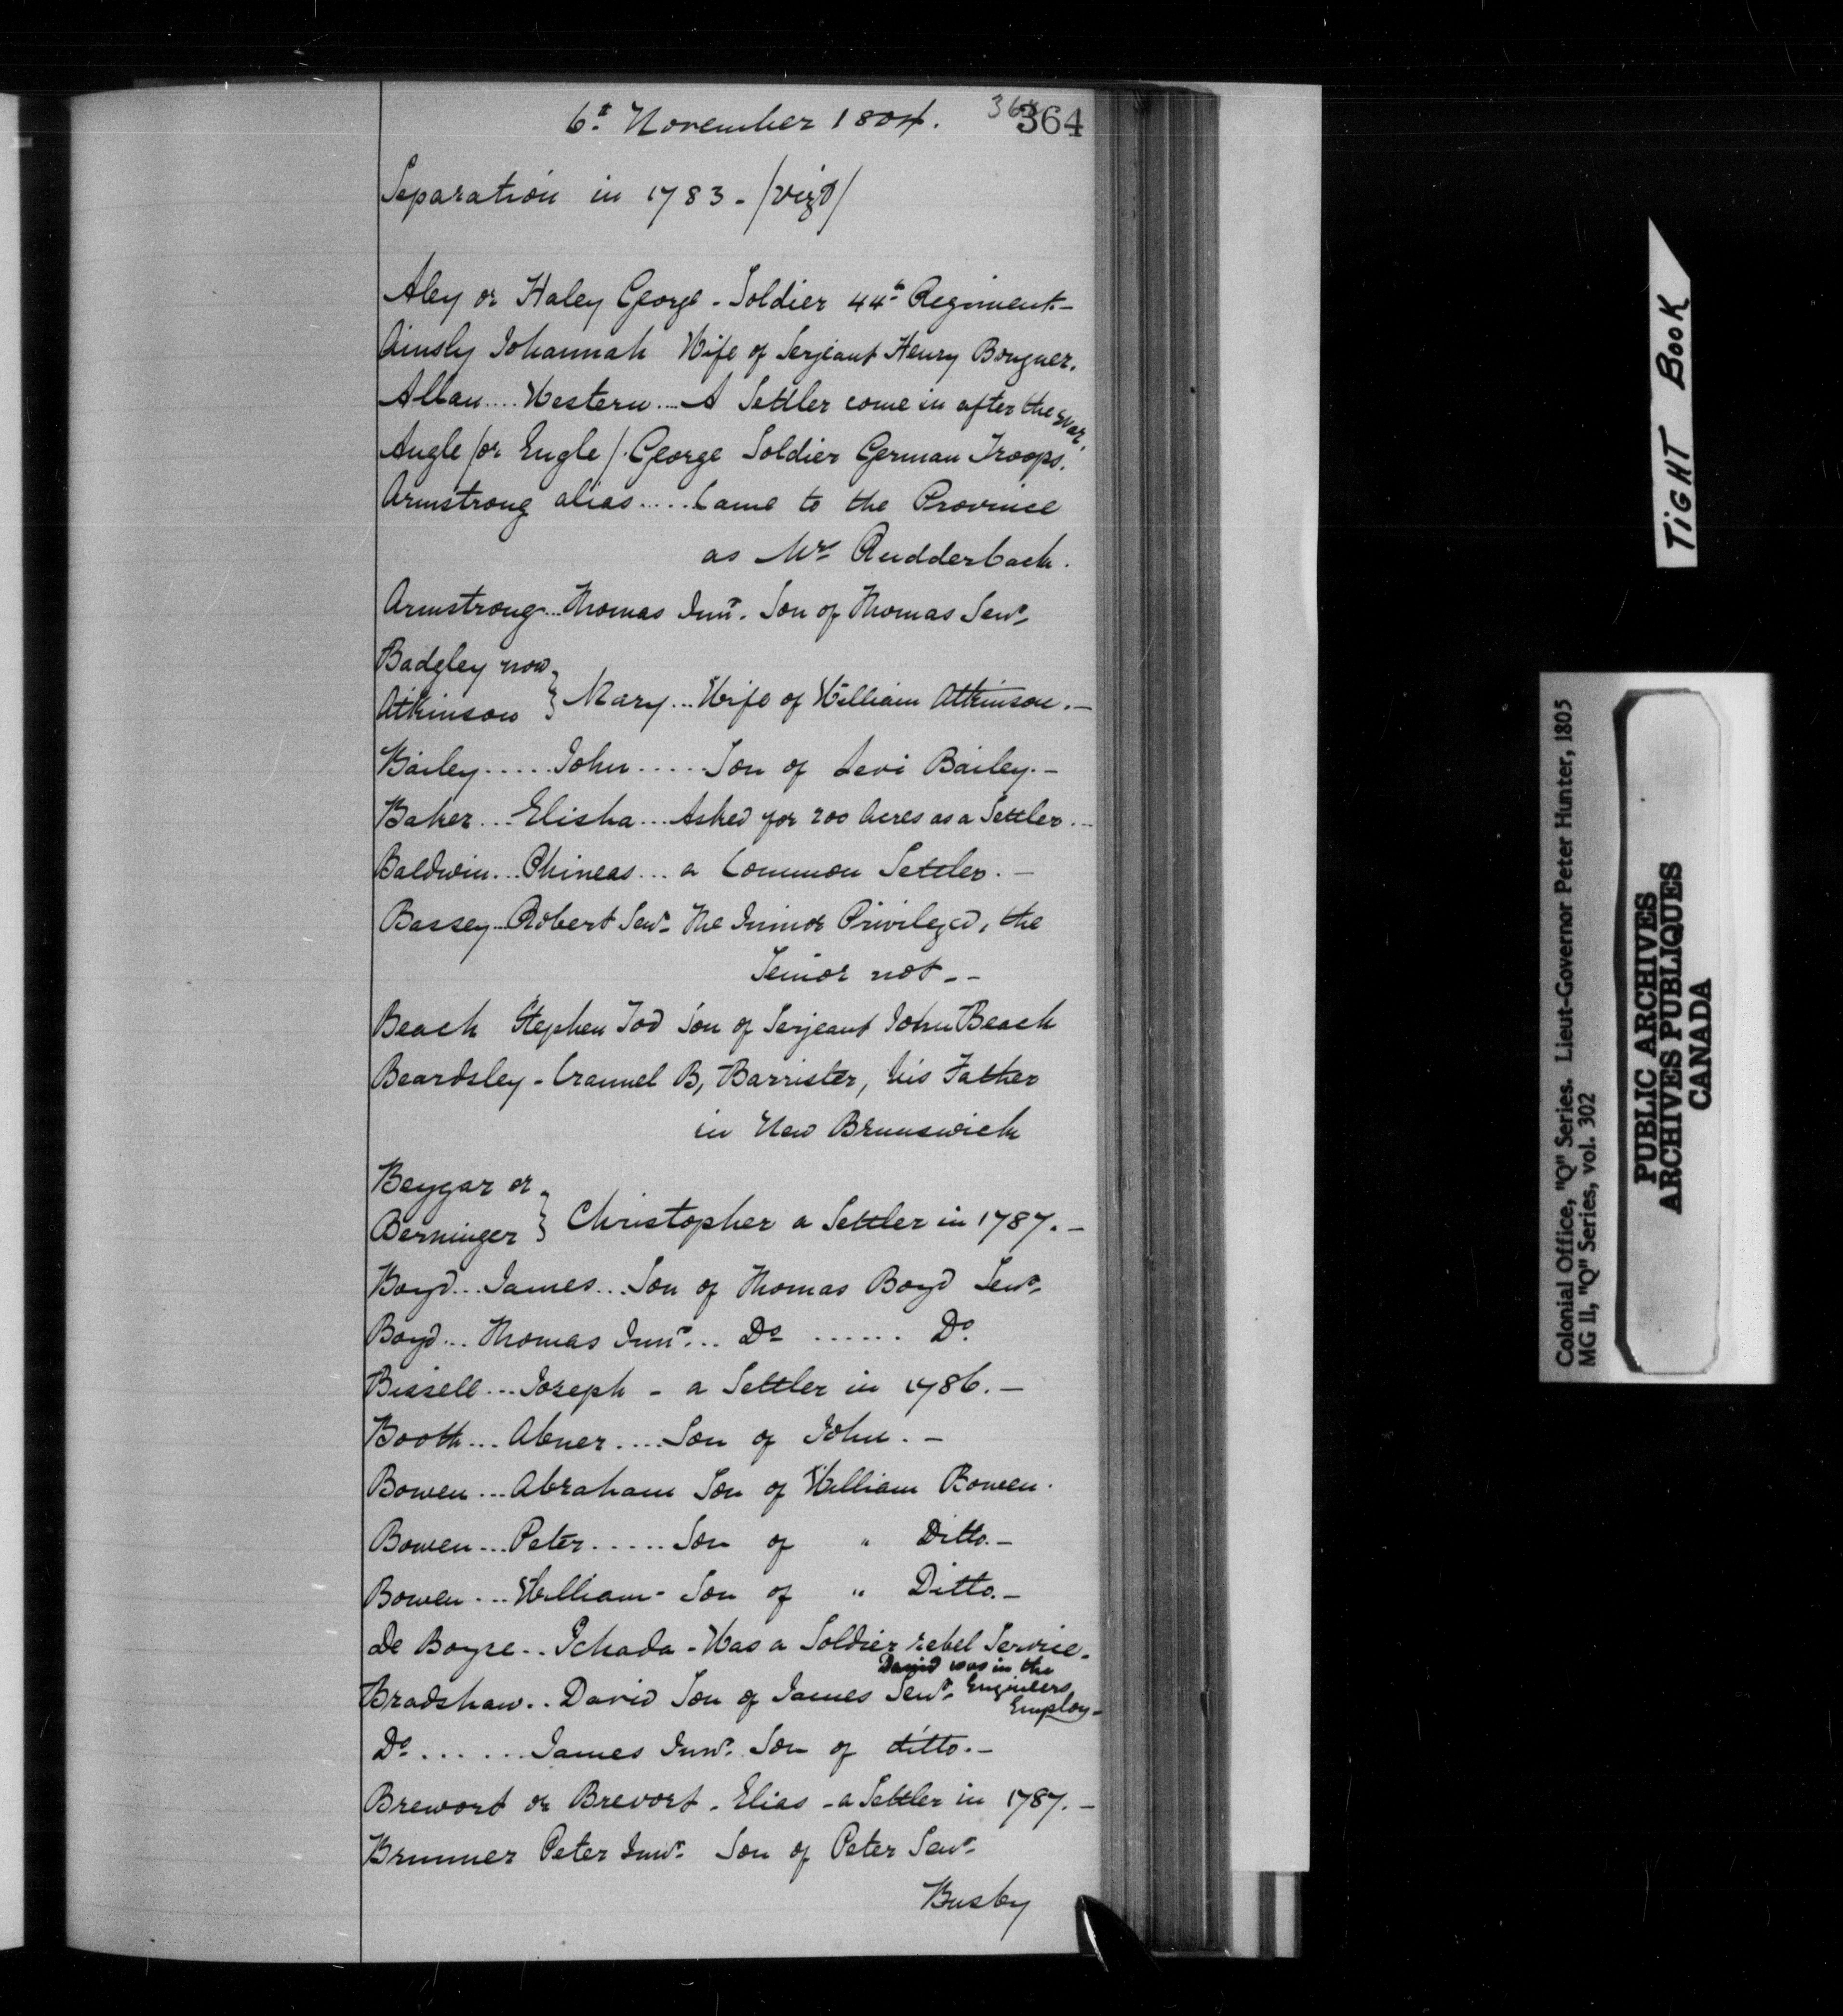 6.t November 1804.
364
364
Separation in 1783 - /vizt/
Aley or Haley George - Soldier 44th Regiment. -
Ainsly Johannah Wife of Serjeant Henry Bougner.
Allan .... Western .... A Settler come in after the war.
Angle /or Engle/. George Soldier German Troops.
Armstrong alias ..... Came to the Province
as Mrs Rudderback.
Armstrong ... Thomas Junr. Son of Thomas Senr.
Badgley now
Atkinson } Mary ... Wife of William Atkinson. -
Bailey ..... John ..... Son of Levi Bailey. -
Baker ... Elisha ... Asked for 200 Acres as a Settler. -
Baldwin ... Phineas ... a Common Settler. -
Bassey ... Robert Senr. The Junior Privileged, the
Senior not - -
Beach Stephen Tod Son of Serjeant John Beach
Beardsley - Crannel B, Barrister, his Father
in New Brunswick
Beygar or
Berninger } Christopher a Settler in 1787. -
Boyd ... James ... Son of Thomas Boyd Senr.
Boyd ... Thomas Junr. ... Do ...... Do.
Bissell ... Joseph - a Settler in 1786. -
Booth ... Abner .... Son of John. -
Bowen ... Abraham Son of William Bowen.
Bowen ... Peter ..... Son of " Ditto. -
Bowen ... William - Son of " Ditto. -
De Boyre .. Ichada - Was a Soldier rebel Service.
David was in the
Bradshaw .. David Son of James Senr. Engineers
Employ -
Do. ...... James Junr. Son of ditto. -
Brewort or Brevort. Elias - a Settler in 1787. -
Brunner Peter Junr. Son of Peter Senr.
Busby
TiGHT BOOK
Colonial Office, "Q" Series. Lieut-Governor Peter Hunter, 1805
MG 11, "Q" Series, vol. 302
PUBLIC ARCHIVES
ARCHIVES PUBLIQUES
CANADA